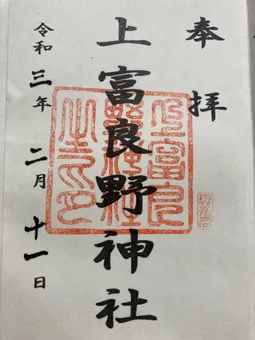 奉拝
上富良野神社
令和三年二月十一日